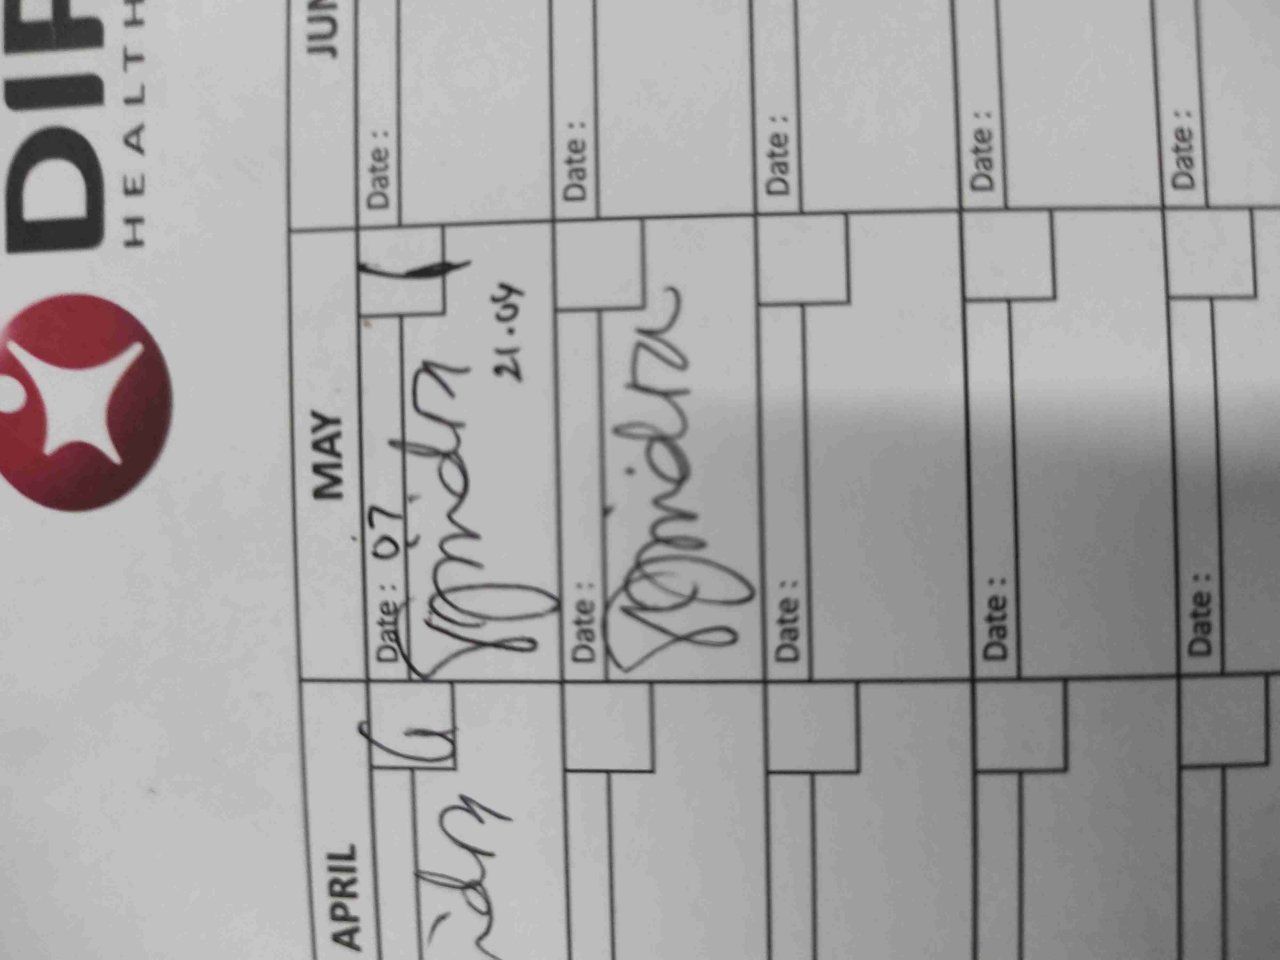 DIR
HEALTH
APRIL
MAY
JUN
Date : 07
Date :
21.04
Date :
Date :
Date :
Date :
Date :
Date :
Date :
Date :